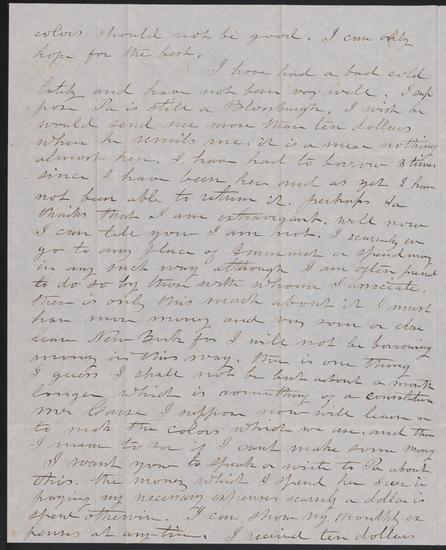 colors should not be good. I can only
hope for the best.
I have had a bad cold
lately and have not been very well. I sup
pose Pa is still a Blossburgh. I wish he
would send me more than ten dollars
when he remits me. it is a mear nothing
almost here. I have had to borrow 3 times
since I have been here and as yet I have
not been able to return it. perhaps Pa
thinks that I am extravigant. well now
I can tell you I am not. I scarcely ever
go to any place of or spend money
in any such way although I am often
to do so by those with whome I associate.
there is only this much about it I must
have more money and very soon or else
leave New York for I will not be borrowing
money in this way. there is one thing
I guess I shall not be but about a month
longer which is something of a
me. Cause I suppose now will learn
to make the colors which we use. and then
I mean to see if I cant make some money
I want you to speak or write to Pa about
this. the money which I spend here I use in
paying my necessary expenses scarcely a dollar is
spent otherwise. I can show my monthly ex
penses at any time. I received ten dollars